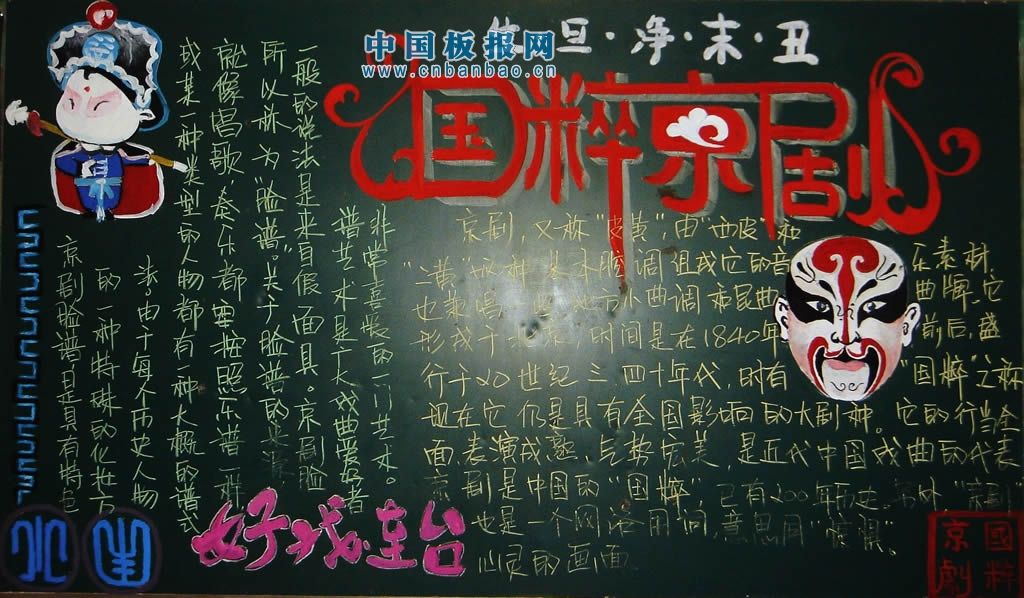 生·旦·净·末·丑
中国板报网
www.cnbanbao.cn
国粹京剧
京剧，又称"皮黄"，由"西皮"和
"二黄"两种基本腔调组成它的音乐素材，
也兼唱一些地方小曲调和昆曲曲牌。它
形成于北京，时间是在1840年前后，盛
行于20世纪三、四十年代，时有"国粹"之称
现在它仍是具有全国影响的大剧种。它的行当全
面、表演成熟、气势宏美，是近代中国戏曲的代表
京剧是中国的"国粹"，已有200年历史。另外"京剧"
也是一个网络用词，意思同"惊惧"。
心灵的画面
京剧脸谱，是具有特色
的一种特殊的化妆方
法。由于每个历史人物
或某一种类型的人物都有一种大概的谱式
就像唱歌、奏乐都要按照乐谱一样
所以称为"脸谱"。关于脸谱的来源
一般的说法是来自假面具。京剧脸
谱艺术是广大戏曲爱好者
非常喜爱的一门艺术。
好戏连台
國粹
京劇